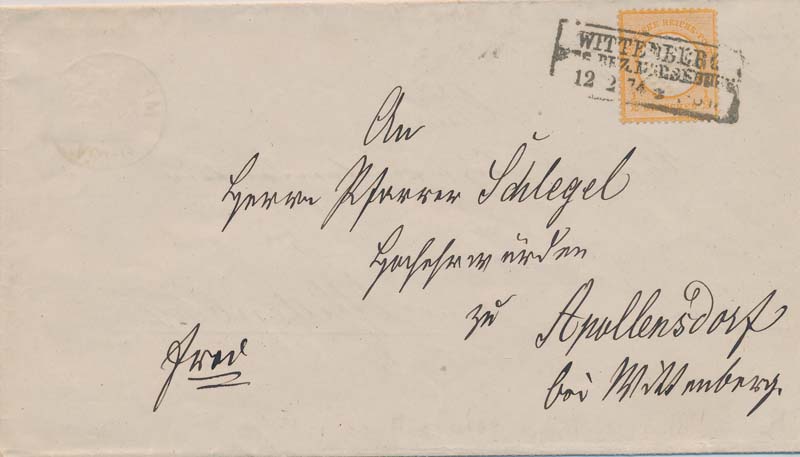 WITTENBERG
REG. BEZ. MERSEBURG
12 2 74
An
Herrn Pfarrer Schlegel
Hochehrwürden
zu Apollensdorf
bei Wittenberg.